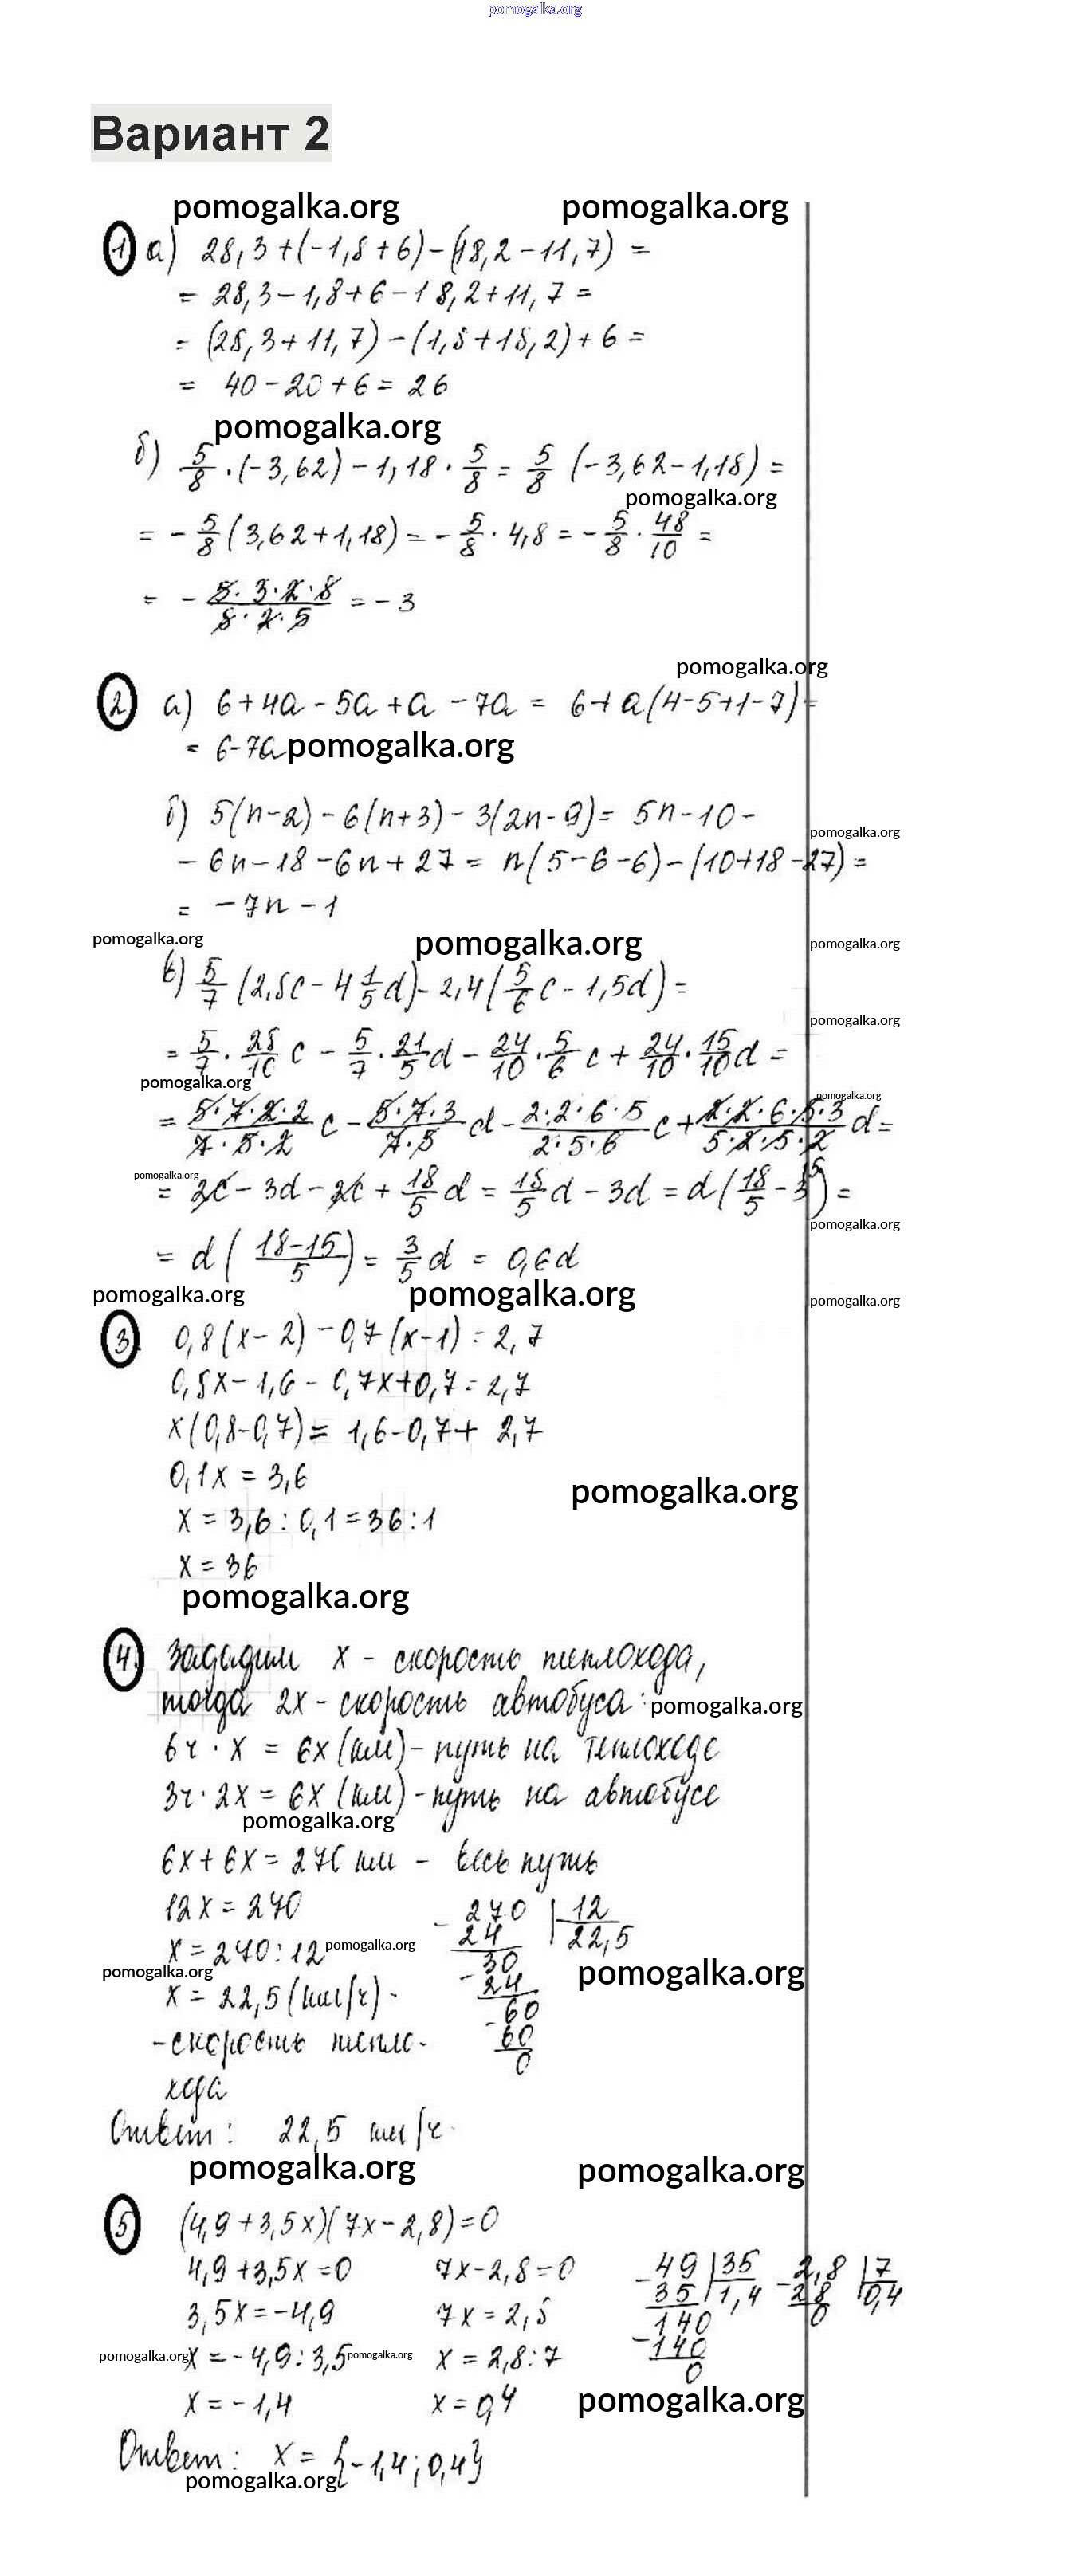 pomogalka.org
Вариант 2
pomogalka.org pomogalka.org
1 а) 28,3+(-1,8+6)-(18,2-11,7) =
= 28,3-1,8+6-18,2+11,7 =
= (28,3+11,7)-(1,8+18,2)+6 =
= 40-20+6=26
pomogalka.org
б) 5/8·(-3,62)-1,18·5/8 = 5/8 (-3,62-1,18) =
pomogalka.org
= -5/8(3,62+1,18)=-5/8·4,8=-5/8·48/10 =
= - 5·3·2·8/8·2·5 = -3
pomogalka.org
2 а) 6+4a-5a+a-7a = 6+a(4-5+1-7)=
= 6-7a pomogalka.org
б) 5(n-2)-6(n+3)-3(2n-9)= 5n-10-
pomogalka.org
-6n-18-6n+27 = n(5-6-6)-(10+18-27)=
= -7n-1
pomogalka.org pomogalka.org pomogalka.org
в) 5/7 (2,8c-4 1/5 d)-2,4(5/6 c-1,5d)=
pomogalka.org
= 5/7·28/10 c - 5/7·21/5 d - 24/10·5/6 c + 24/10·15/10 d =
pomogalka.org pomogalka.org
= 5·7·2·2/7·5·2 c - 5·7·3/7·5 d - 2·2·6·5/2·5·6 c + 2·2·6·5·3/5·2·5·2 d =
pomogalka.org
= 2c-3d-2c+18/5 d = 18/5 d-3d = d(18/5-3 5) =
pomogalka.org
= d(18-15/5) = 3/5 d = 0,6d
pomogalka.org pomogalka.org pomogalka.org
3 0,8(x-2)-0,7(x-1)=2,7
0,8x-1,6-0,7x+0,7=2,7
x(0,8-0,7)= 1,6-0,7+2,7
0,1x=3,6
pomogalka.org
x=3,6:0,1=36:1
x=36
pomogalka.org
4. Зададим x - скорость теплохода,
тогда 2x - скорость автобуса. pomogalka.org
6ч·x = 6x (км) - путь на теплоходе
3ч·2x = 6x (км) - путь на автобусе
pomogalka.org
6x+6x=270 км - весь путь
12x=270
x=270:12 pomogalka.org
pomogalka.org
x=22,5 (км/ч) -
- скорость тепло-
хода
- 270 | 12
24 22,5
- 30
24
- 60
60
0
pomogalka.org
Ответ: 22,5 км/ч.
pomogalka.org pomogalka.org
5 (4,9+3,5x)(7x-2,8)=0
4,9+3,5x=0 7x-2,8=0
3,5x=-4,9 7x=2,8
pomogalka.org x=-4,9:3,5 pomogalka.org x=2,8:7
x=-1,4 x=0,4
- 49 | 35
35 1,4
140
- 140
0
- 2,8 | 7
28 0,4
0
pomogalka.org
Ответ: x={-1,4;0,4}
pomogalka.org